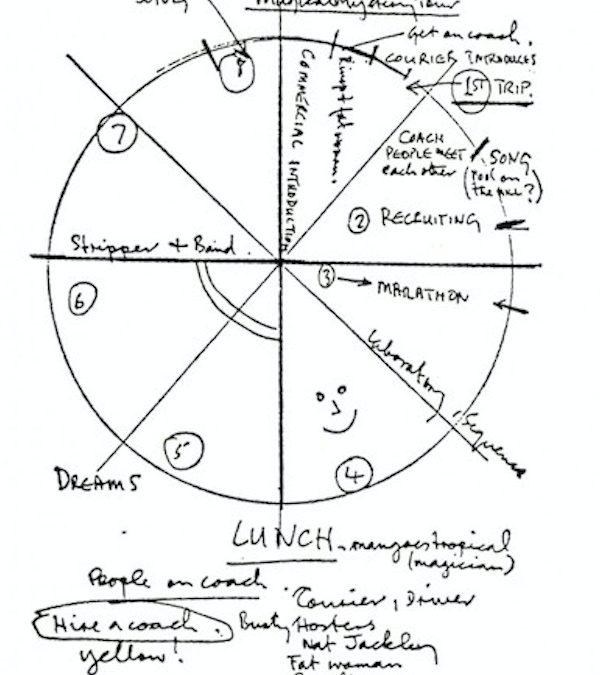 Magical Mystery Tour
Get on coach.
COURIER INTRODUCES
8
COMMERCIAL INTRODUCTION
fat woman.
1ST TRIP.
7
COACH
PEOPLE MEET
each other
SONG
(Fool on
the hill?)
2 RECRUITING
Stripper + Band.
3 → MARATHON
6
Laboratory Sequence
5
4
DREAMS
LUNCH. mangoes tropical
(magician)
People on coach.
Courier, Driver
Hire a coach.
Busty Hostess
yellow!
Nat Jackley
Fat woman